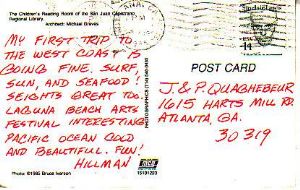 The Children's Reading Room of the San Juan Capistrano
Regional Library
Architect: Michael Graves
MY FIRST TRIP TO
THE WEST COAST IS
GOING FINE. SURF,
SUN, AND SEAFOOD!
SEIGHTS GREAT TOO.
LAGUNA BEACH ARTS
FESTIVAL INTERESTING
PACIFIC OCEAN COLD
AND BEAUTIFUL. FUN!
HILLMAN
Photo ©1985 Bruce Iverson
POST CARD
J. & P. QUAGHEBEUR
1615 HARTS MILL RD.
ATLANTA, GA.
30319